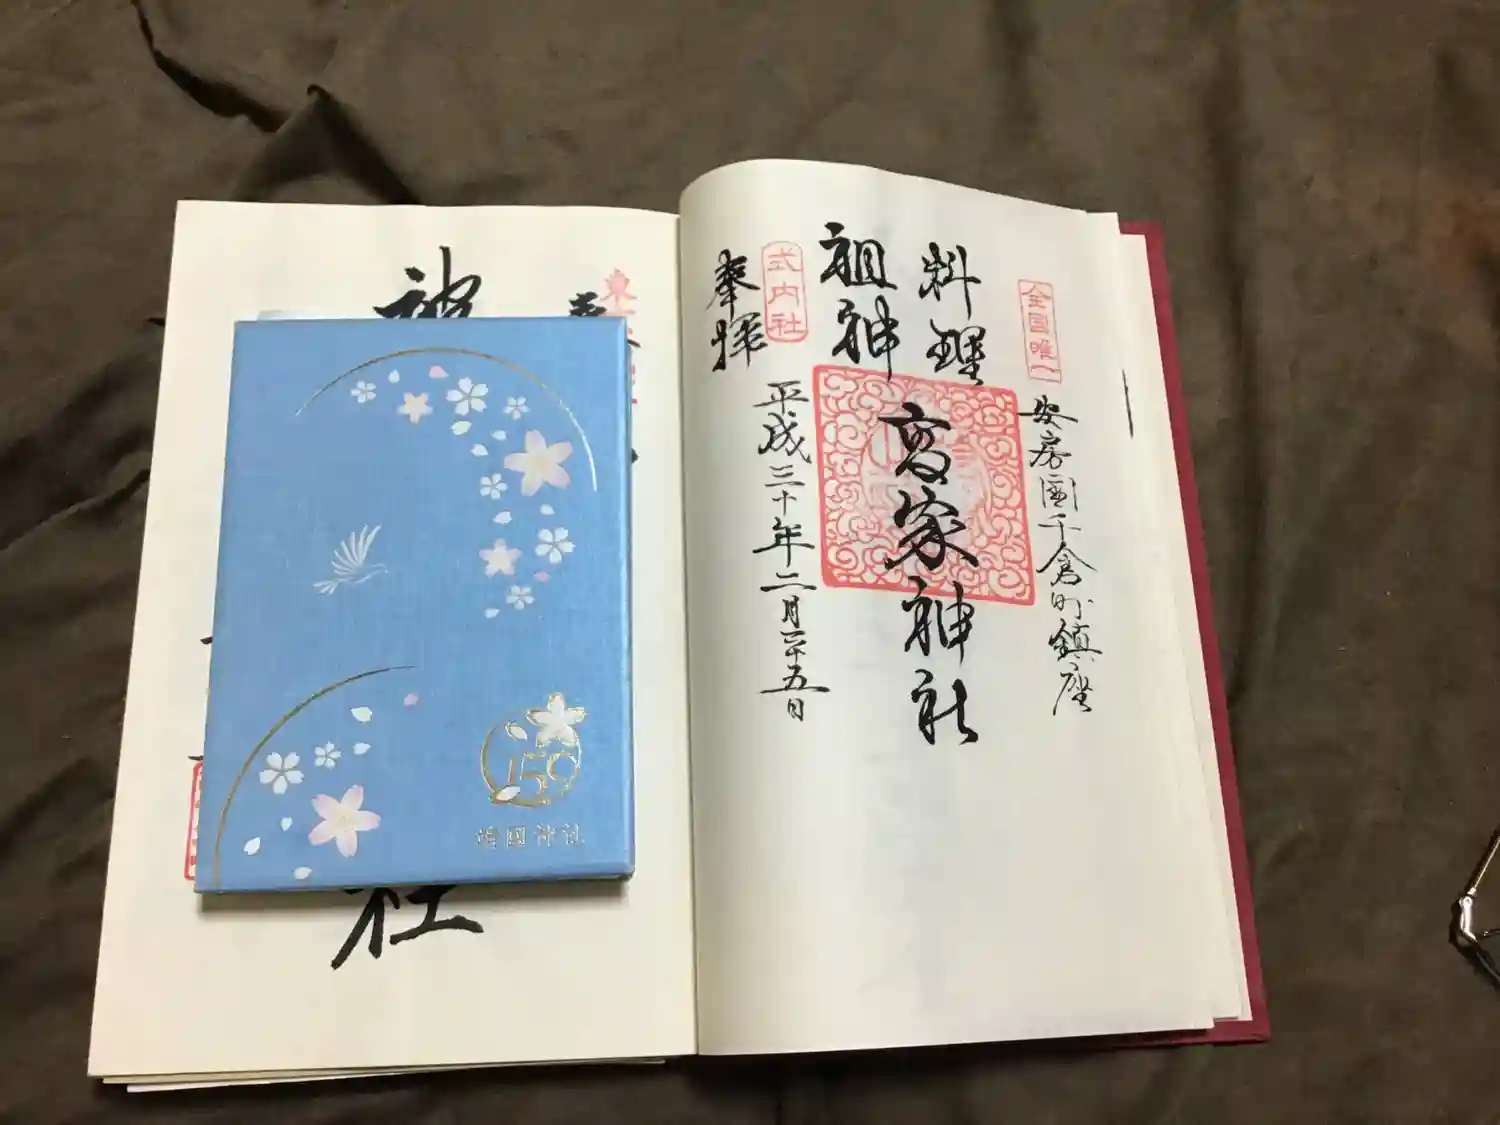 全国唯一
安房国千倉町鎮座
料理
祖神
高家神社
式内社
奉拝
平成三十年二月二十五日
東
神
社
150
靖國神社